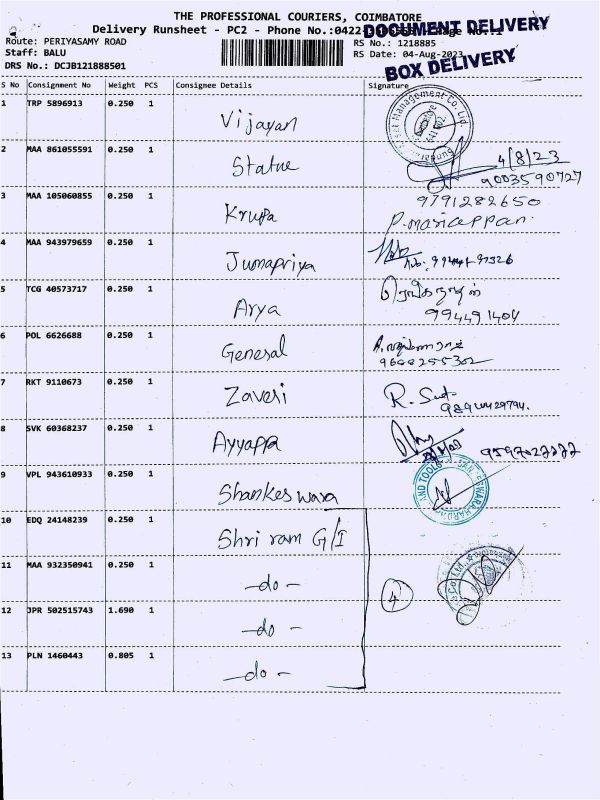 THE PROFESSIONAL COURIERS, COIMBATORE
Delivery Runsheet - PC2 - Phone No.:0422-
DOCUMENT DELIVERY
BOX DELIVERY
Route: PERIYASAMY ROAD
RS No.: 1218885
Staff: BALU
RS Date: 04-Aug-2023
DRS No.: DCJB121888501
S No Consignment No Weight PCS Consignee Details Signature
1 TRP 5896913 0.250 1 Vijayan
2 MAA 861055591 0.250 1 Statue 4/8/23
9003590727
3 MAA 105060855 0.250 1 Krupa 9791282650
P. mariappan.
4 MAA 943979659 0.250 1 Jumapriya
5 TCG 40573717 0.250 1 Arya
994491404
6 POL 6626688 0.250 1 General
7 RKT 9110673 0.250 1 Zaveri R.
8 SVK 60368237 0.250 1 Ayyappa
9 VPL 943610933 0.250 1 Shankeswara AND TOOLS
10 EDQ 24148239 0.250 1 Shri ram G/I
11 MAA 932350941 0.250 1 -do-
4
12 JPR 502515743 1.690 1 -do-
13 PLN 1460443 0.805 1 -do-